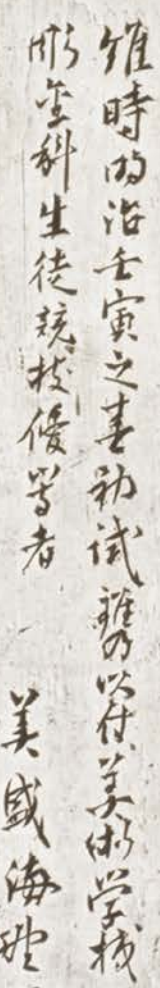 維時明治壬寅之春初試鐫以付美術学校
彫金科生徒競技優等者
美盛海野